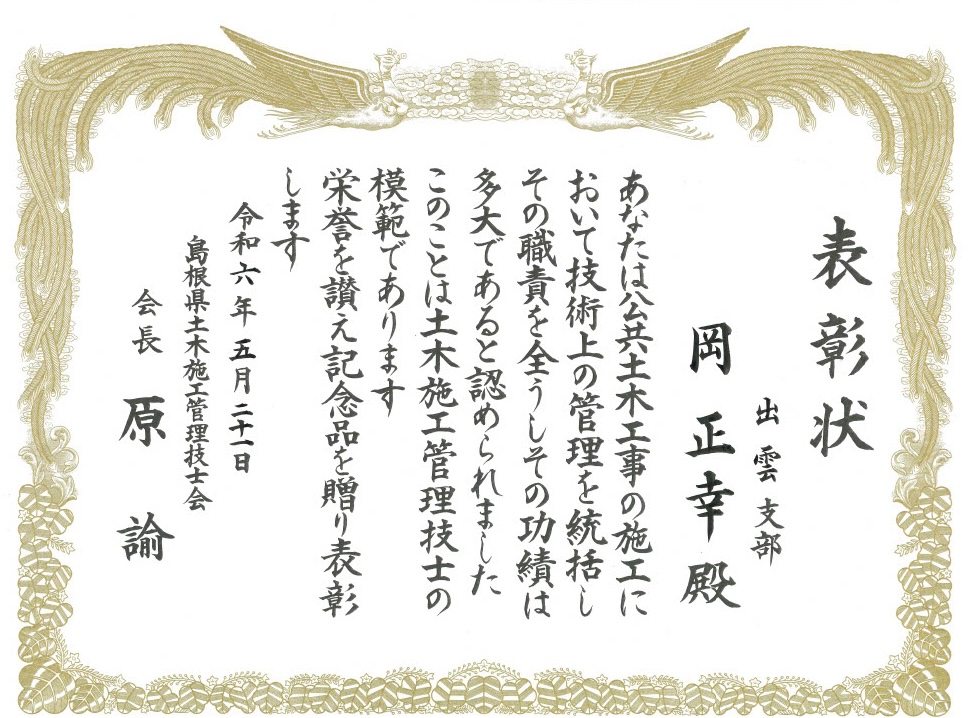 表彰状
出雲支部
岡正幸殿
あなたは公共土木工事の施工に
おいて技術上の管理を統括し
その職責を全うしその功績は
多大であると認められました
このことは土木施工管理技士の
模範であります
栄誉を讃え記念品を贈り表彰
します
令和六年五月二十一日
島根県土木施工管理技士会
会長 原諭